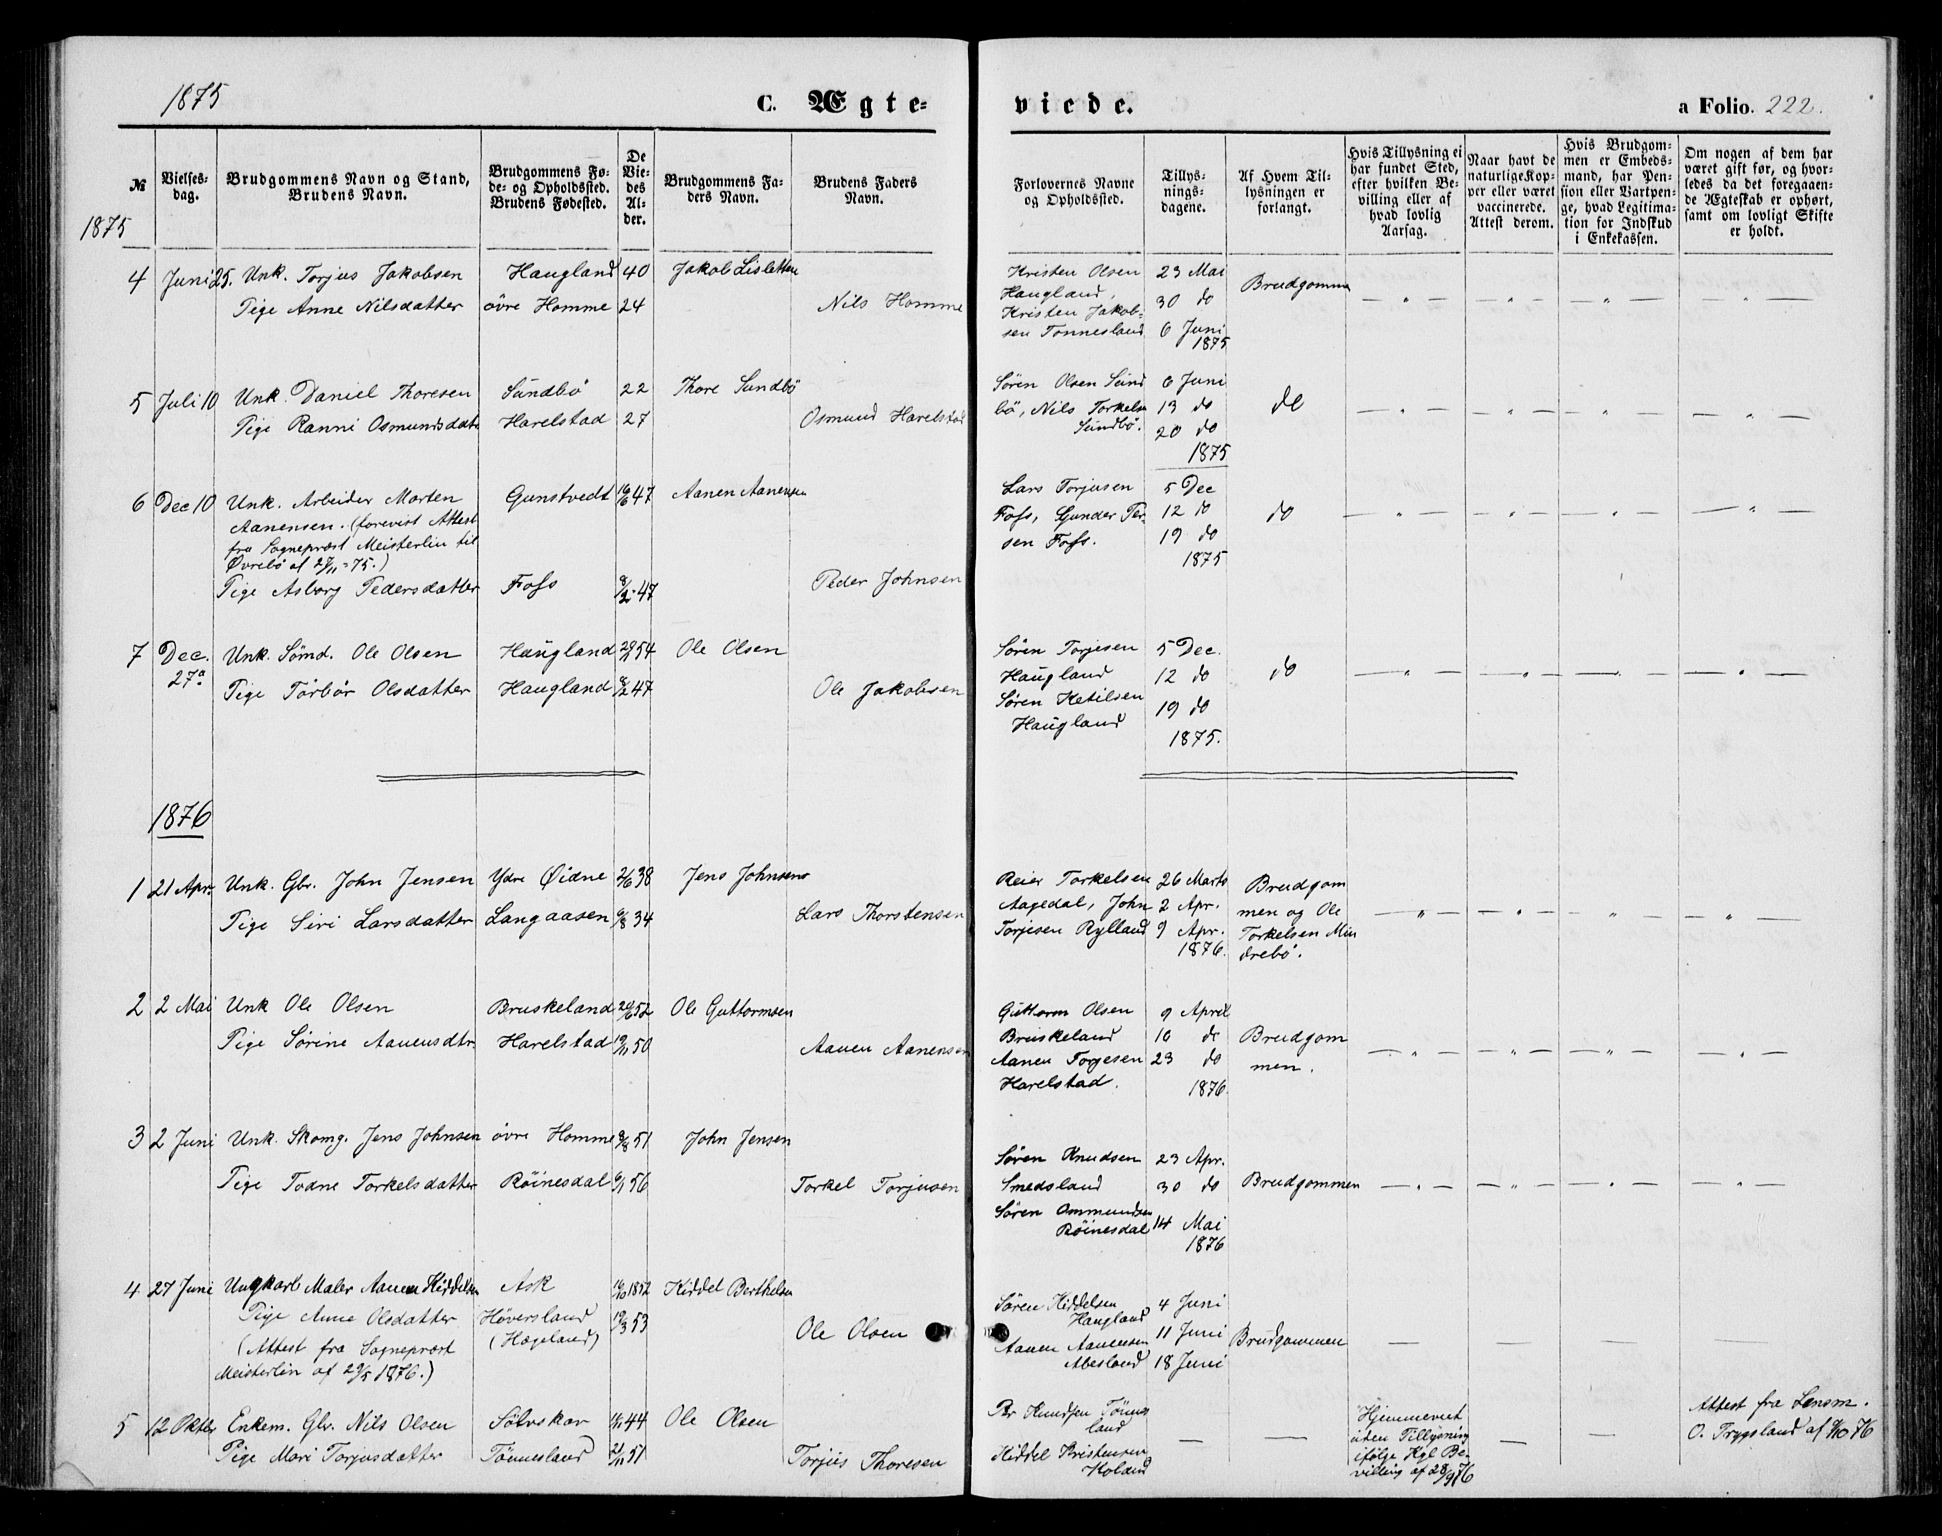 1875
C. Ægte-
viede.
a Folio. 222.
№
Vielses-
dag.
Brudgommens Navn og Stand,
Brudens Navn.
Brudgommens Fø-
de- og Opholdssted.
Brudens Fødested.
De
Vie-
des
Al-
der.
Brudgommens Fa-
ders Navn.
Brudens Faders
Navn.
Forlovernes Navne
og Opholdssted.
Tillys-
nings-
dagene.
Af Hvem Til-
lysningen er
forlangt.
Hvis Tillysning ei
har fundet Sted,
efter hvilken Be-
villing eller af
hvad lovlig
Aarsag.
Naar havt de
naturlige Kop-
per eller været
vaccinerede.
Attest derom.
Hvis Brudgom-
men er Embeds-
mand, har Pen-
sion eller Vartpen-
ge, hvad Legitima-
tion for Indskud
i Enkekassen.
Om nogen af dem har
været gift før, og hvor-
ledes da det foregaaen-
de Ægteskab er ophørt,
samt om lovligt Skifte
er holdt.
1875
4 Juni 25. Unk. Torjus Jakobsen Haugland 40 Jakob Lisletten
Pige Anne Nilsdatter övre Homme 24 Nils Homme
Kristen Olsen
Haugland,
Kristen Jakob-
sen Tonnesland
23 Mai
30 do
6 Juni
1875
Brudgomme
— " — — " — — " — — " —
5 Juli 10 Unk. Daniel Thoresen Sundbö 22 Thore Sundbö
Pige Ranni Osmundsdatt Harelstad 27 Osmund Harelstad
Sören Olsen Sund
bö, Nils Torkelse
Sundbö.
6 Juni
13 do
20 do
1875
do
— " — — " — — " — — " —
6 Dec 10 Unk. Arbeider Morten Gunstvedt 16/6 47 Aanen Aanensen
Aanensen. (forevist Attest
fra Sognepræst Meisterlin til
Øvrebö af 27/11 - 75.)
Pige Asborg Pedersdatter Foss 8/2 47 Peder Johnsen
Lars Torjusen
Foss, Gunder Per-
sen Foss.
5 Dec
12 do
19 do
1875
do
— " — — " — — " — — " —
7 Dec. 27de Unk. Sömd. Ole Olsen Haugland 29/11 54 Ole Olsen
Pige Törbör Olsdatter Haugland 8/2 47 Ole Jakobsen
Sören Torjesen
Haugland
Sören Ketilsen
Haugland
5 Dec.
12 do
19 do
1875.
do
— " — — " — — " — — " —
1876
1 21 Apr. Unk. Gbr. John Jensen Ydre Øidne 2/6 38 Jens Johnsen
Pige Siri Larsdatter Langaasen 6/8 34 Lars Thorstensen
Reier Torkelsen
Aagedal, John
Torjesen Rylland
26 Marts
2 Apr.
9 Apr.
1876.
Brudgom
men og Ole
Torkelsen Min
drebö.
— " — — " — — " — — " —
2 2 Mai Unk Ole Olsen Bruskeland 24/6 52 Ole Guttormsen
Pige Sörine Aanensdtr. Harelstad 19/11 50 Aanen Aanensen
Guttorm Olsen
Bruskeland
Aanen Torjesen
Harelstad.
9 April
16 do
23 do
1876.
Brudgom
men.
— " — — " — — " — — " —
3 2 Juni Unk. Skomg. Jens Johnsen övre Homme 8/8 51 John Jensen
Pige Todne Torkelsdatter Röinesdal 6/1 56 Torkel Torjusen
Sören Knudsen
Smedsland
Sören Ommundsen
Röinesdal
23 Apr.
30 do
14 Mai
1876
Brudgommen
— " — — " — — " — — " —
4 27 Juni Ungkarl Maler Aanen Kiddelsen Ask 16/10 1852 Kiddel Berthelsen
Pige Anne Olsdatter Höversland 19/3 53 Ole Olsen
(Attest fra Sognepræst (Hægeland)
Meisterlin af 29/5 1876.)
Sören Kiddelsen
Haugland
Aanen Aanensen
Abesland
4 Juni
11 Juni
18 Juni
Brudgommen
— — — —
5 12 Okter Enkem. Gbr. Nils Olsen Sölvskar 11/11 44 Ole Olsen
Pige Mari Torjusdatter Tönnesland 21/11 51 Torjus Thoresen
Per Knudsen Tönnes
land
Kiddel Kristensen
Kolans
— —
Hjemmeviet
uden Tillysning
ifölge Kgl Be-
villing af 28/9 76
— —
Attest fra Lensm.
O. Trygsland af 9/10 76